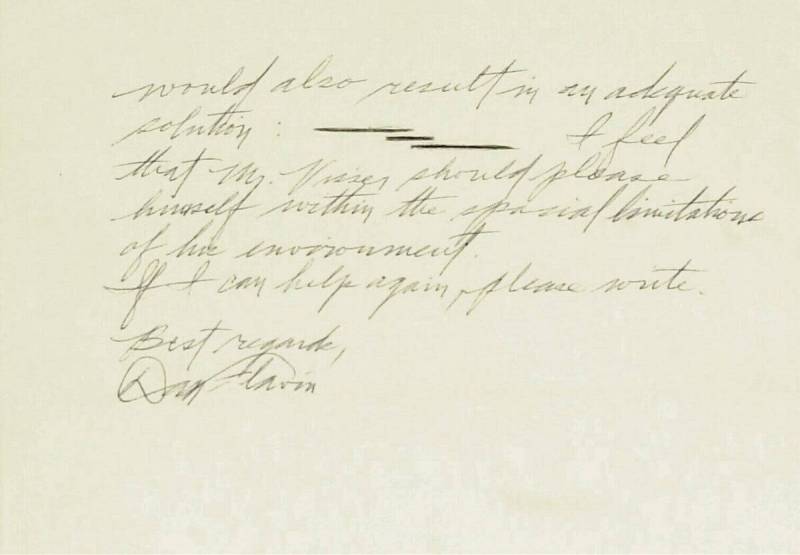 would also result in an adequate
solution : I feel
that Mr. Visser should please
himself within the spacial limitations
of his environment.
If I can help again, please write.
Best regards,
Dan Flavin